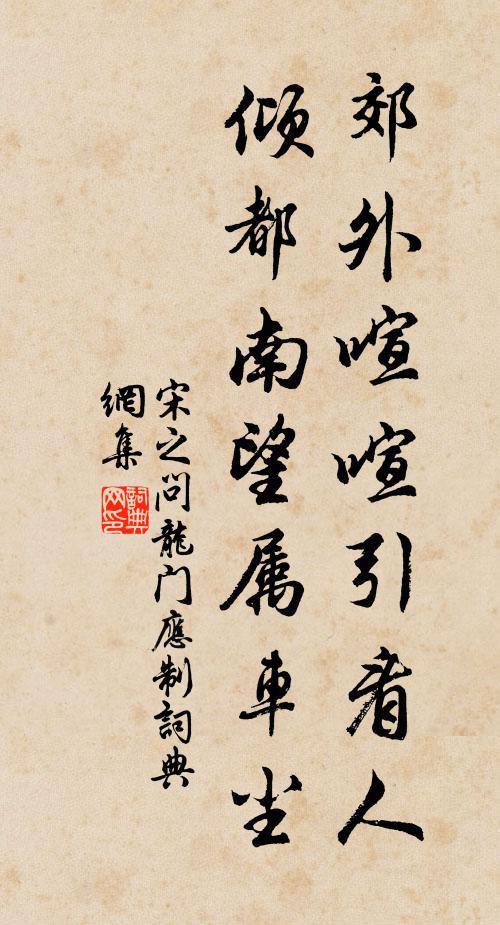 郊外喧喧引看人
傾都南望属車尘
宋之问龍门應制詞典
網集
詞典网印